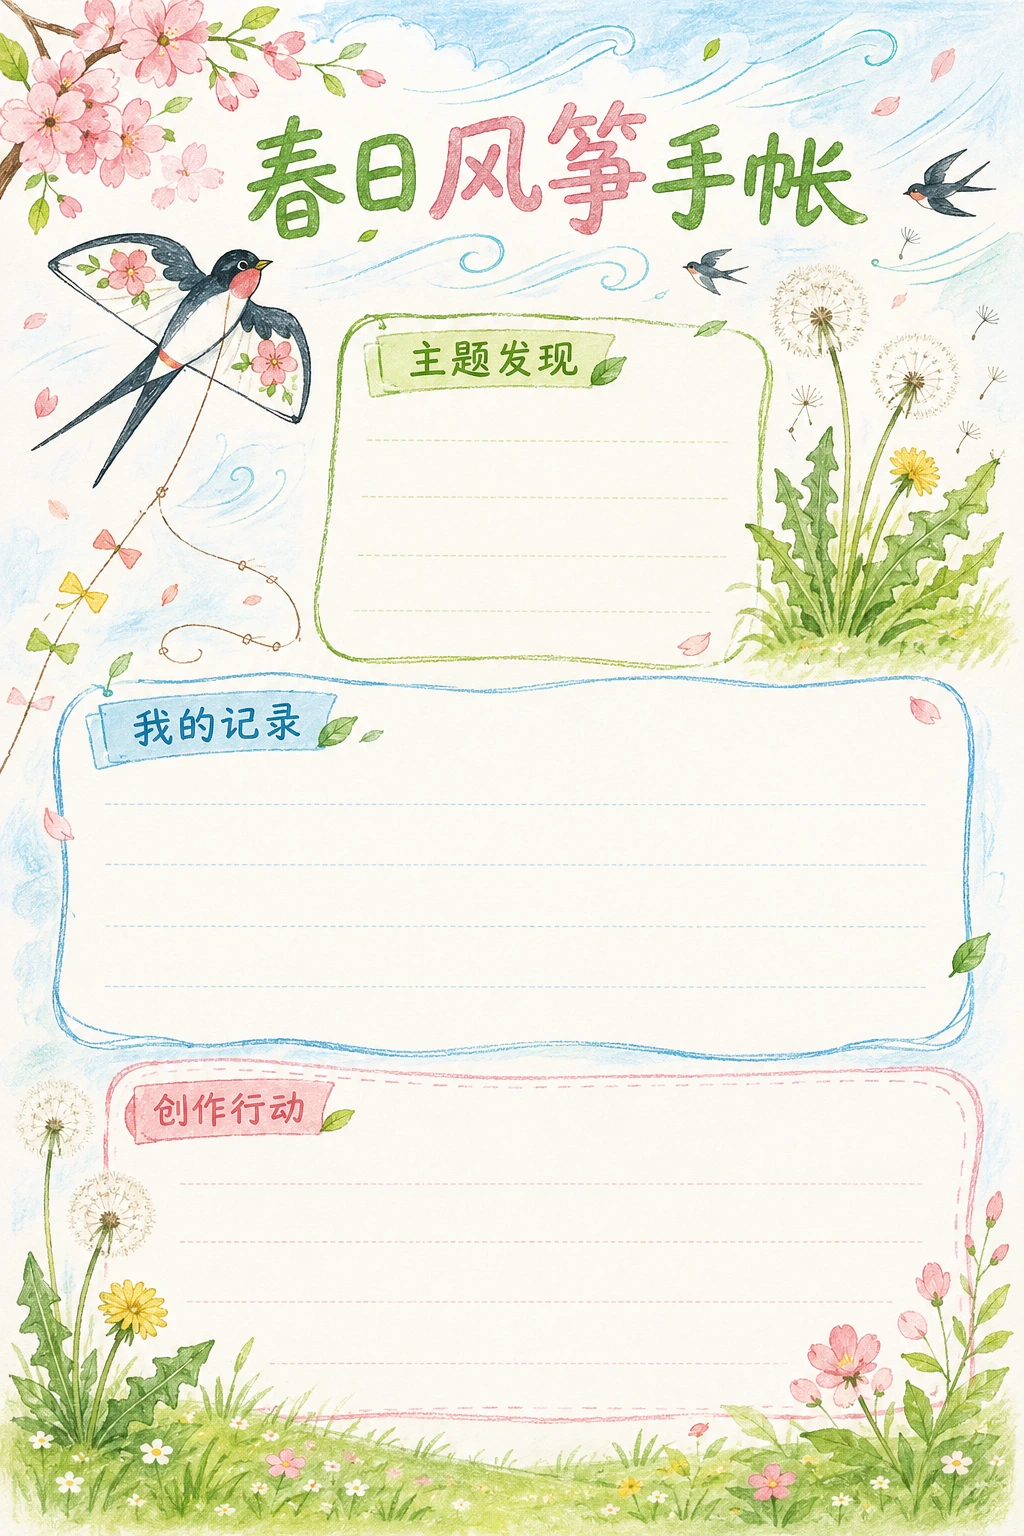 春日风筝手帐
主题发现
我的记录
创作行动